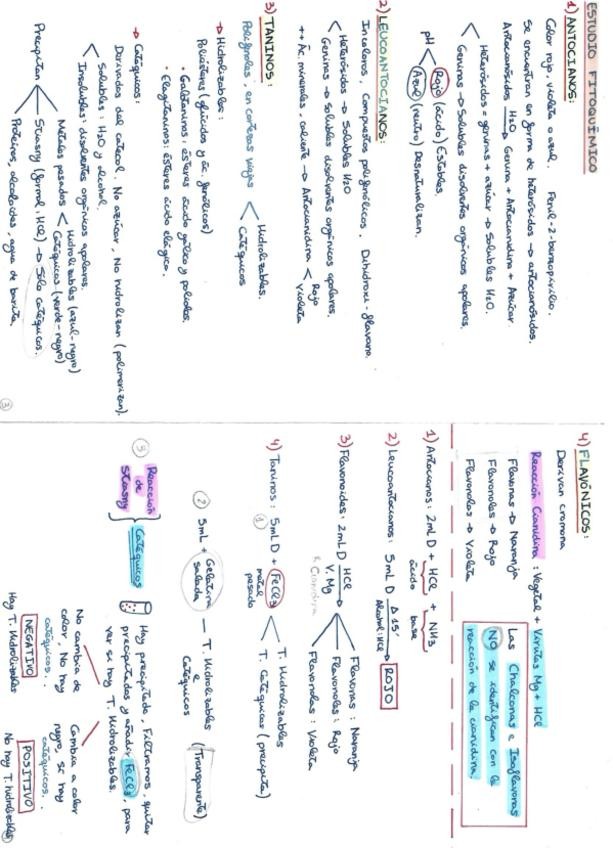 ESTUDIO FITOQUÍMICO
1) ANTOCIANOS:
Color rojo, violeta o azul. Fenil-2-benzopirilo.
Se encuentran en forma de heterósidos → antocianósidos.
Antocianósidos H2O → Genina + Antocianidina + Azúcar
Heterósidos = geninas + azúcar → Solubles H2O.
Geninas → Solubles disolventes orgánicos apolares.
pH
Rojo (ácido) Estables.
Azul (neutro) Desnaturalizan.
2) LEUCOANTOCIANOS:
Incoloros, Compuestos polifenólicos, Dihidroxi-flavano.
Heterósidos → Solubles H2O
Geninas → Solubles disolventes orgánicos apolares.
++ Ác. minerales, caliente → Antocianidina
Rojo
Violeta
3) TANINOS:
Polifenoles, en cortezas viejas
Hidrolizables.
Catéquicos
→ Hidrolizables:
Poliésteres (glúcidos y ác. fenólicos)
• Galotaninos: ésteres ácido gálico y polioles.
• Elagitaninos: ésteres ácido elágico.
→ Catéquicos:
Derivados del catecol, No azúcar, No hidrolizan (polimerizan).
Solubles: H2O y alcohol.
Insolubles: disolventes orgánicos apolares.
Precipitan
Metales pesados
Hidrolizables (azul-negro)
Catéquicos (verde-negro)
Stiasny (formol, HCl) → Sólo catéquicos.
Proteínas, alcaloides, agua de barita.
3
4) FLAVÓNICOS:
Derivan cromona
Reacción Cianidina: Vegetal + Virutas Mg + HCl
Flavonas → Naranja
Flavonoles → Rojo
Flavonolas → Violeta
Las Chalconas e Isoflavonas
NO se identifican con la
reacción de la cianidina.
1) Antocianos: 2mL D + HCl + NH3
ácido base
2) Leucoantocianos: 5mL D Δ 15' → ROJO
Alcohol:HCl
3) Flavonoides: 2mL D HCl
V. Mg
R. Cianidina
Flavonas: Naranja
Flavonoles: Rojo
Flavonolas: Violeta
4) Taninos: 5mL D + FeCl3
1
metal
pesado
T. Hidrolizables
T. Catéquicos (precipita)
2 5mL + Gelatina
salada
— T. Hidrolizables
e
Catéquicos
(Transparente)
3 Reacción
de
Stiasny
Catéquicos
Hay precipitado, Filtramos, quitar
precipitados y añadir FeCl3, para
ver si hay T. Hidrolizables.
No cambia de
color, No hay
catéquicos.
NEGATIVO
Hay T. Hidrolizables
Cambia a color
negro, si hay
catéquicos.
POSITIVO
No hay T. hidrolizables